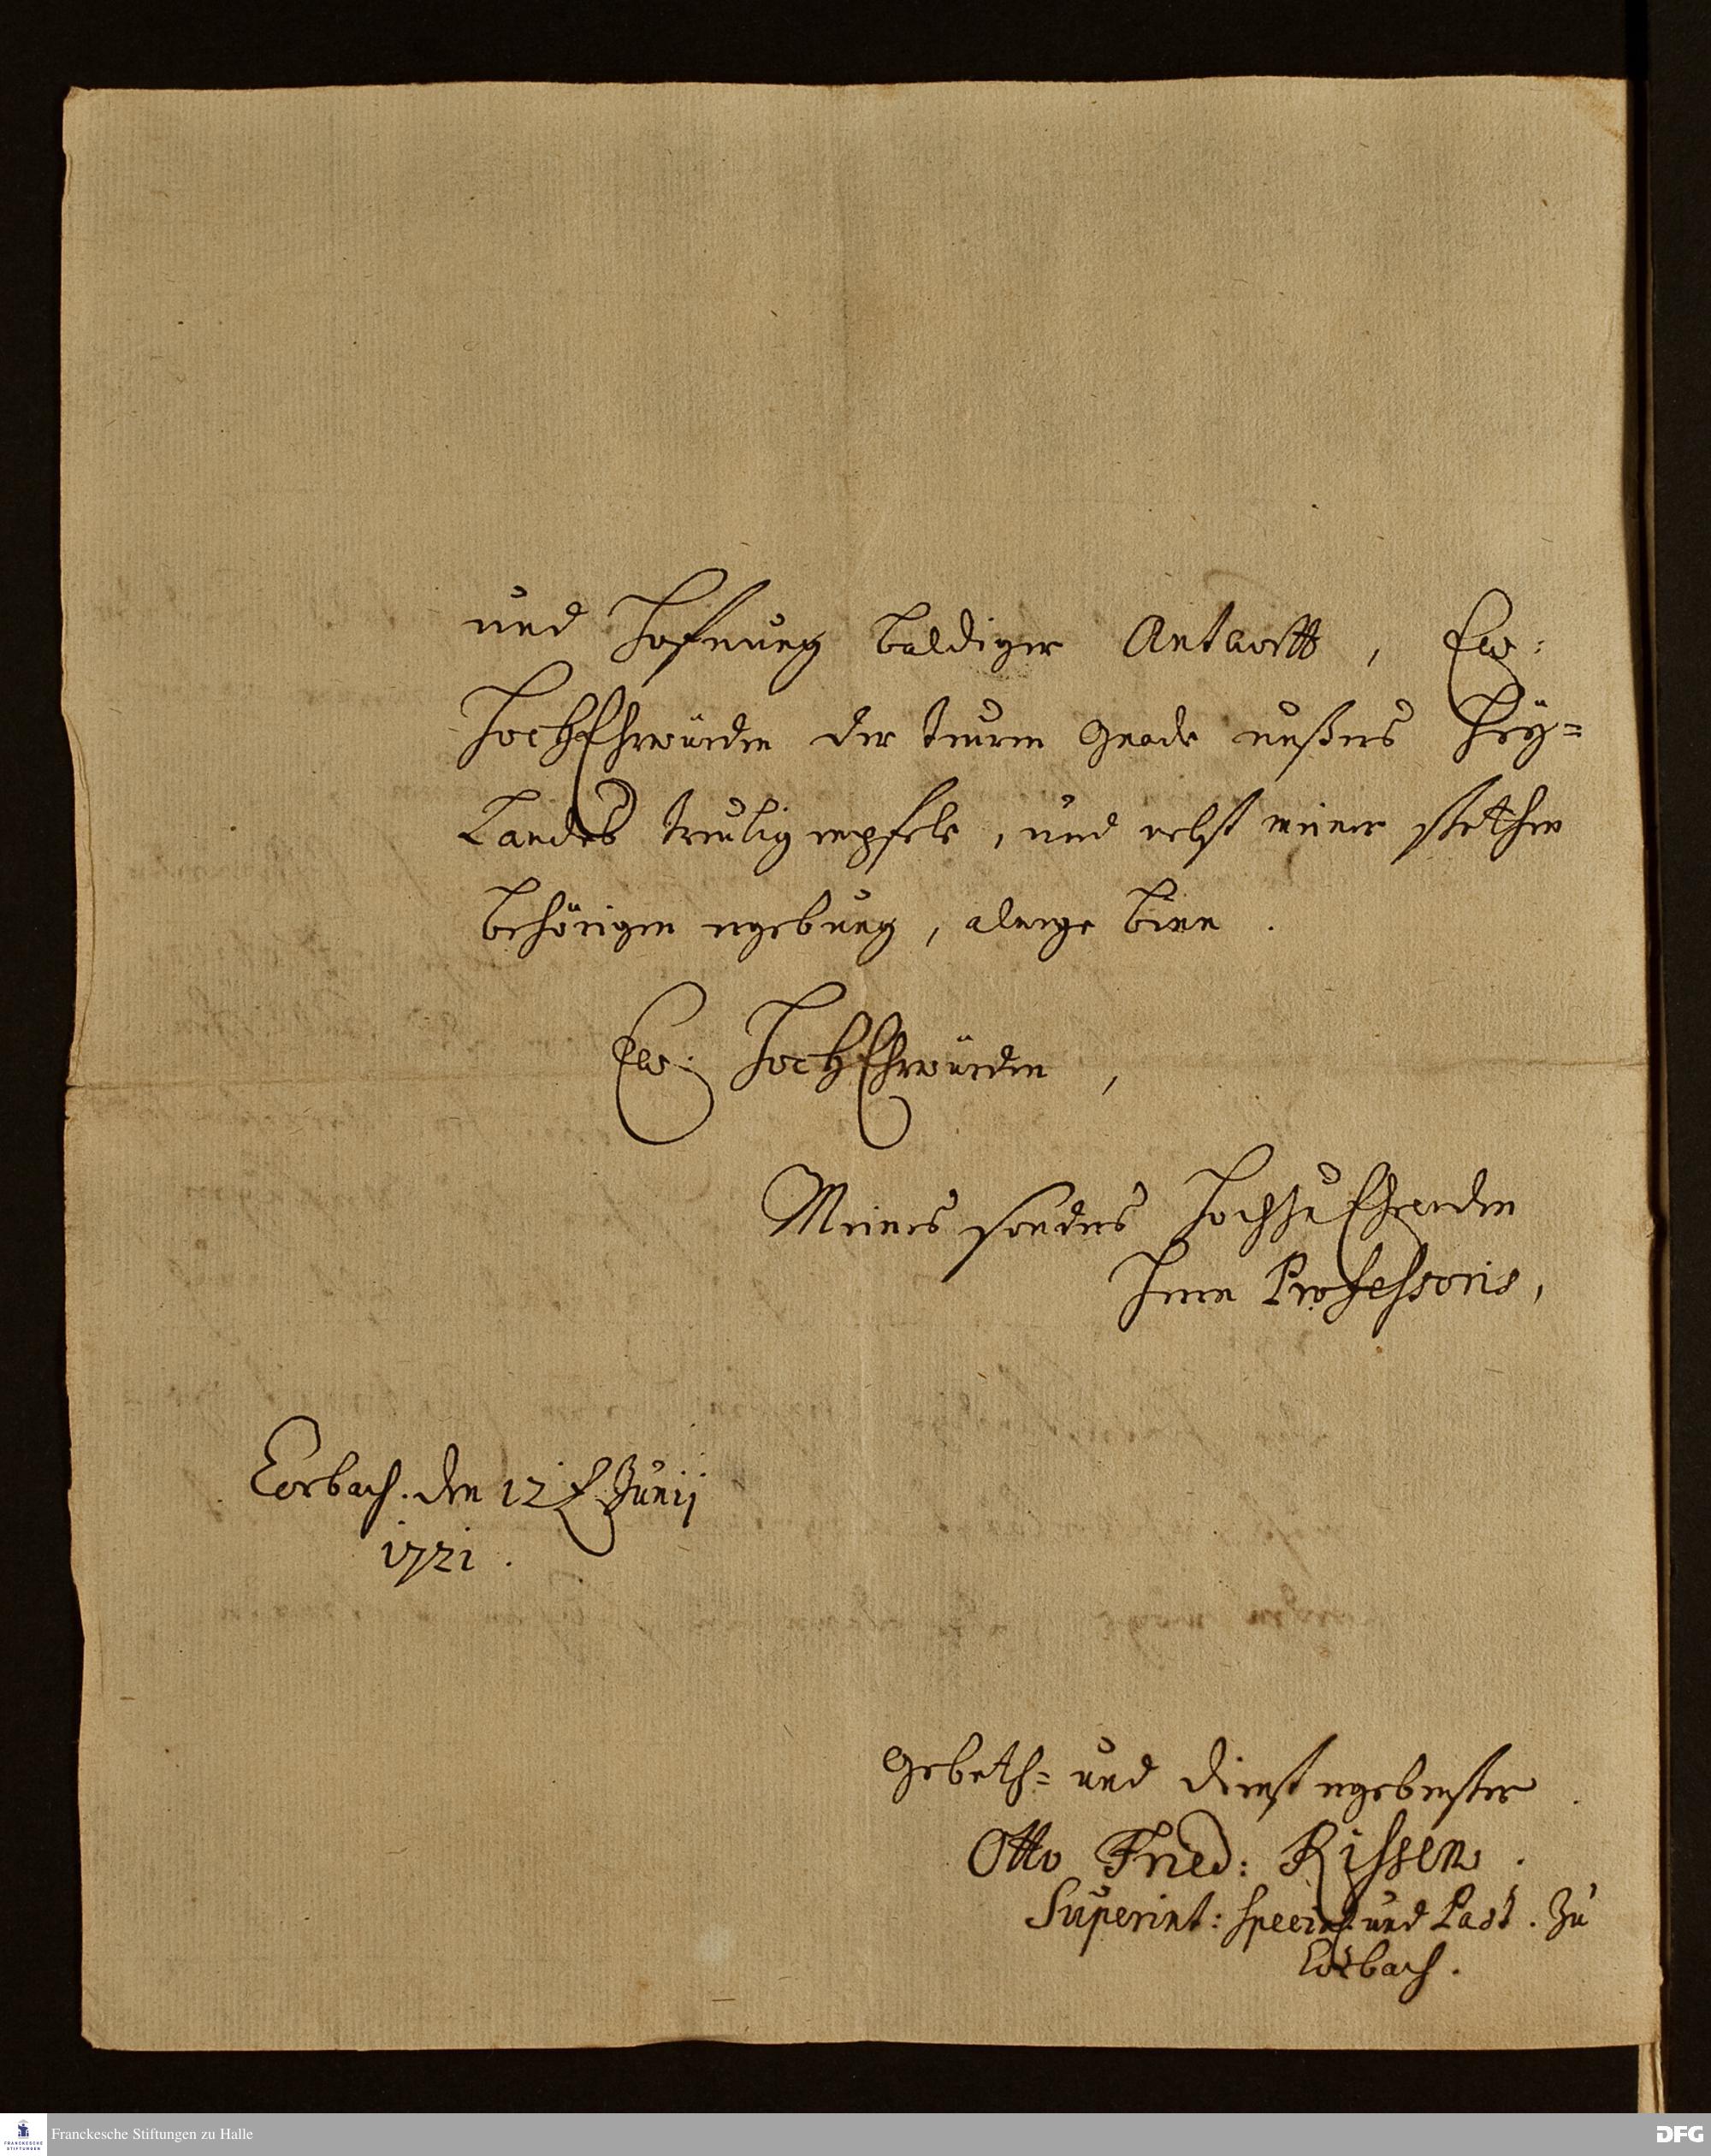 und Hofnung baldiger Antwortt, Ew:
HochEhrwürden der teuren Gnade unßers Hey=
Landes treulig empfele, und nebst meiner stethen
behörigen ergebung, alwege binn.
Ew: HochEhrwürden,
Meines sonders HochzuEhrenden
Herrn Professoris,
Corbach. den 12t Junij
1721.
Gebeth= und dienst ergebenster
Otto Fried: Rissen.
Superint: special und Past. zu
Corbach.
Franckesche Stiftungen zu Halle
DFG